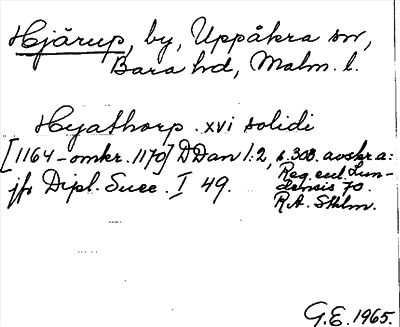 Hjärup, by, Uppåkra sn,
Bara hd, Malm. l.
Hyathorp. xvi solidi
[1164-omkr. 1170] DDan 1:2, s. 303. avskr a:
jfr Dipl. Suec. I 49.
Reg. eccl. Lun-
densis 70.
R.A. Sthlm.
G.E. 1965.